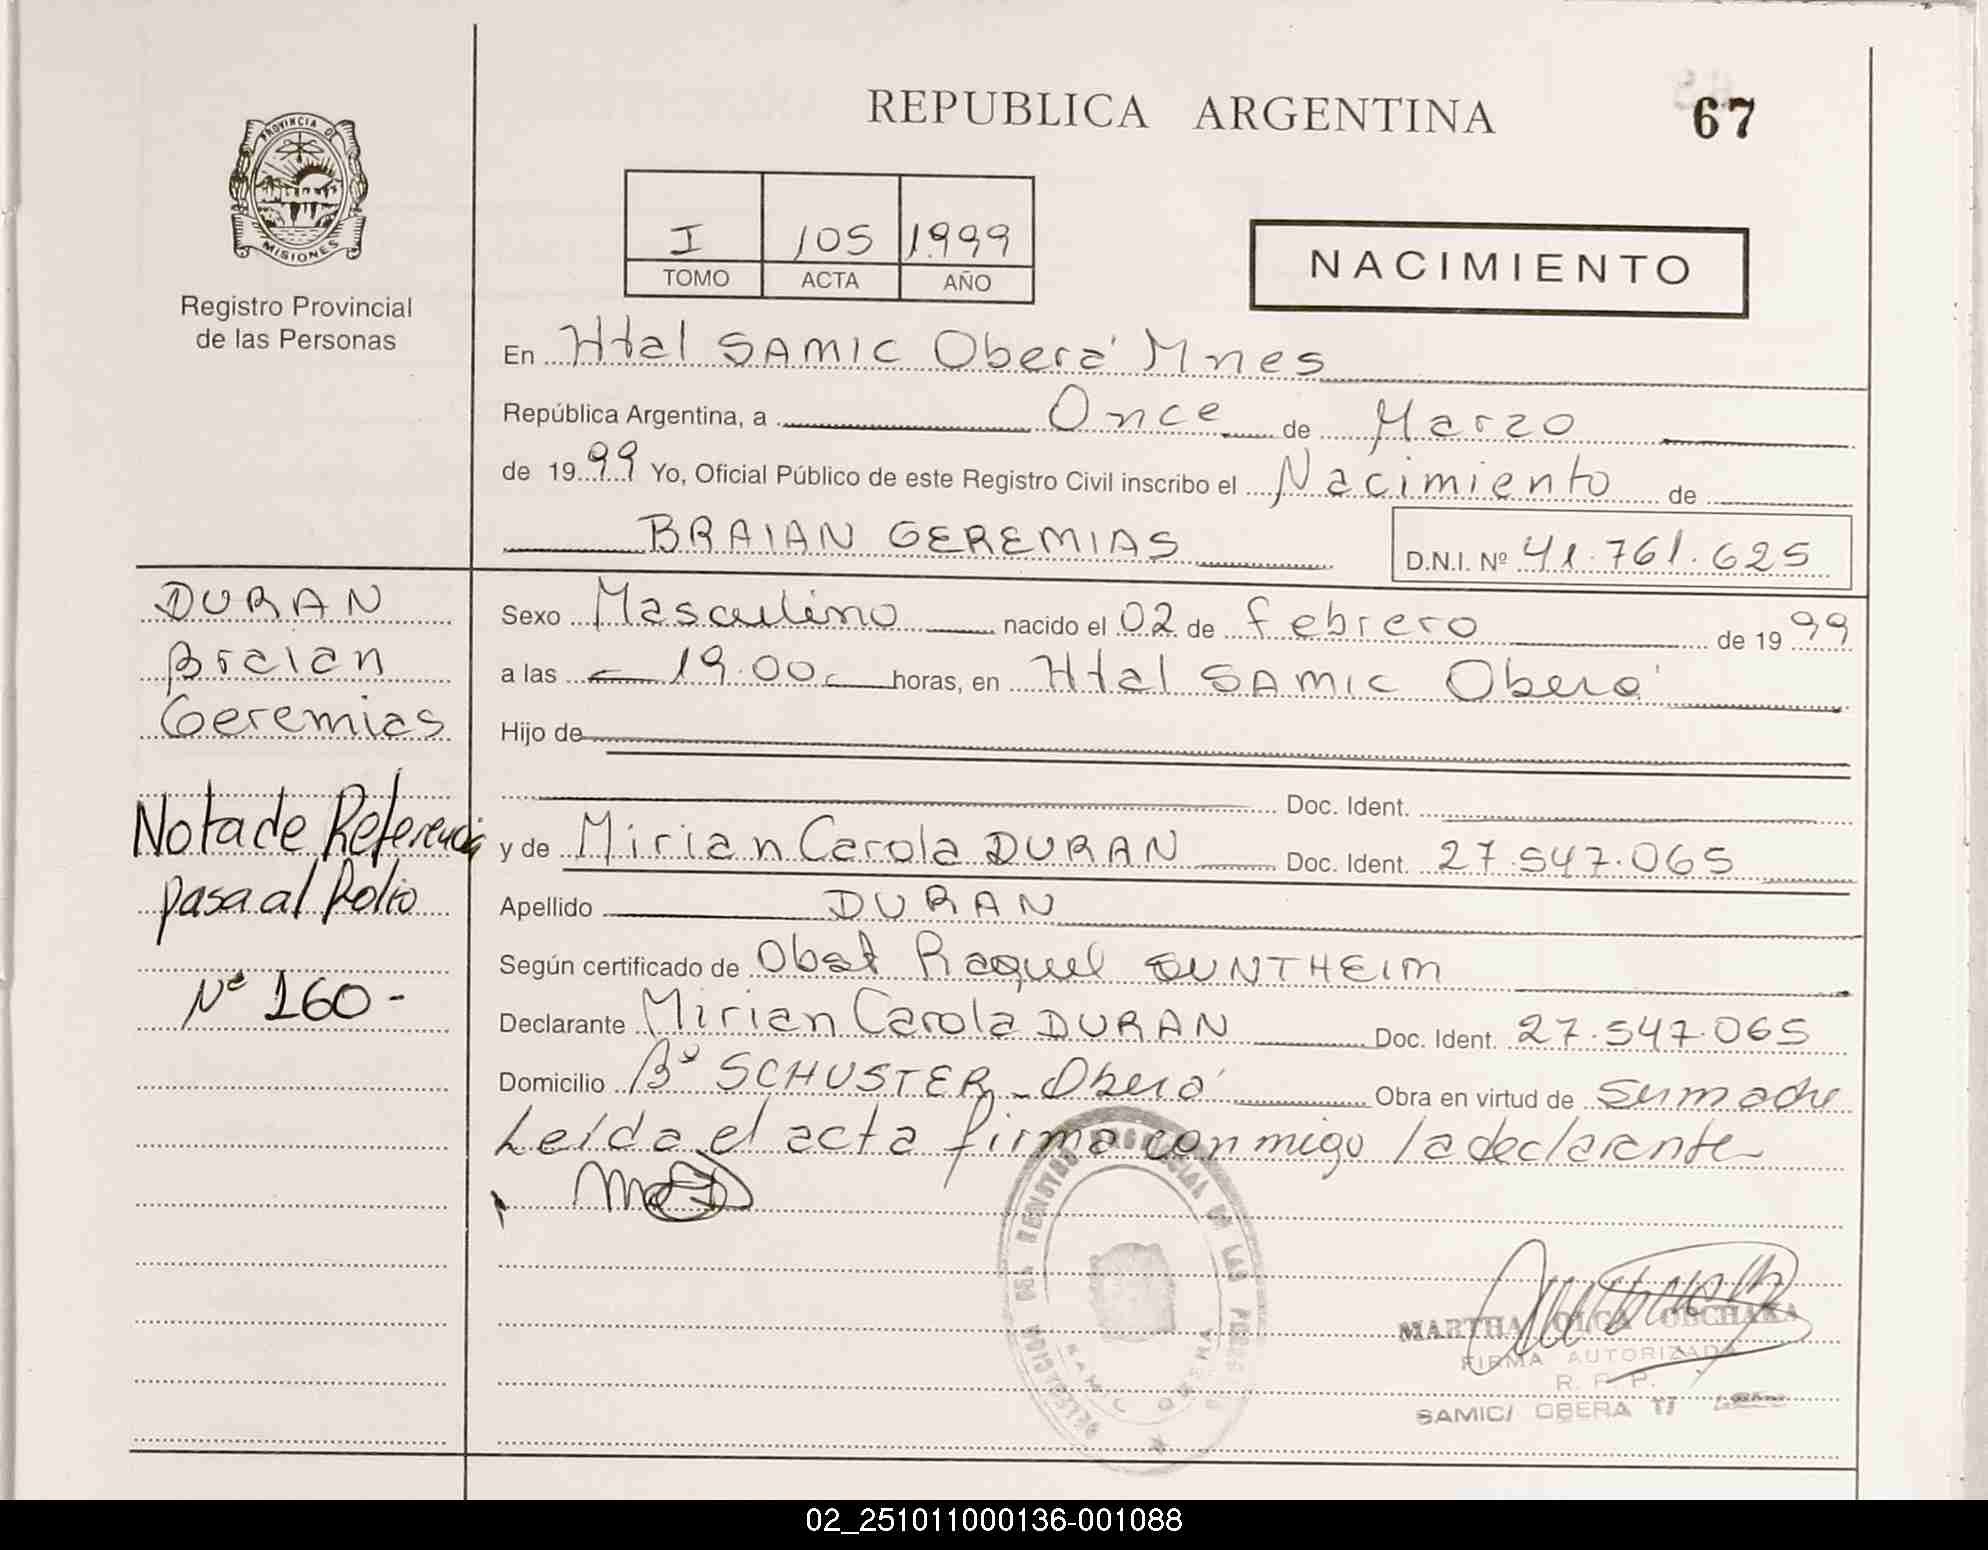 REPUBLICA ARGENTINA
67
PROVINCIA DE
MISIONES
Registro Provincial
de las Personas
I 105 1999
TOMO ACTA AÑO
NACIMIENTO
En Htal SAMIC Oberá Mnes
República Argentina, a Once de Marzo
de 1999 Yo, Oficial Público de este Registro Civil inscribo el Nacimiento de
BRAIAN GEREMIAS D.N.I. Nº 41.761.625
DURAN
Braian
Geremias
Nota de Referencia
pasa al folio
Nº 160-
Sexo Masculino nacido el 02 de febrero de 1999
a las 19.00 horas, en Htal SAMIC Oberá
Hijo de
Doc. Ident.
y de Mirian Carola DURAN Doc. Ident. 27.547.065
Apellido DURAN
Según certificado de Obst Raquel GUNTHEIM
Declarante Mirian Carola DURAN Doc. Ident. 27.547.065
Domicilio Bº SCHUSTER - Oberá Obra en virtud de ser madre
Leída el acta firma conmigo la declarante
DELEGACION DEL REGISTRO PROVINCIAL DE LAS PERS
SAMIC OBERA
MARTHA OLGA
FIRMA AUTORIZADA
R. P. P.
SAMIC/ OBERA
02_251011000136-001088